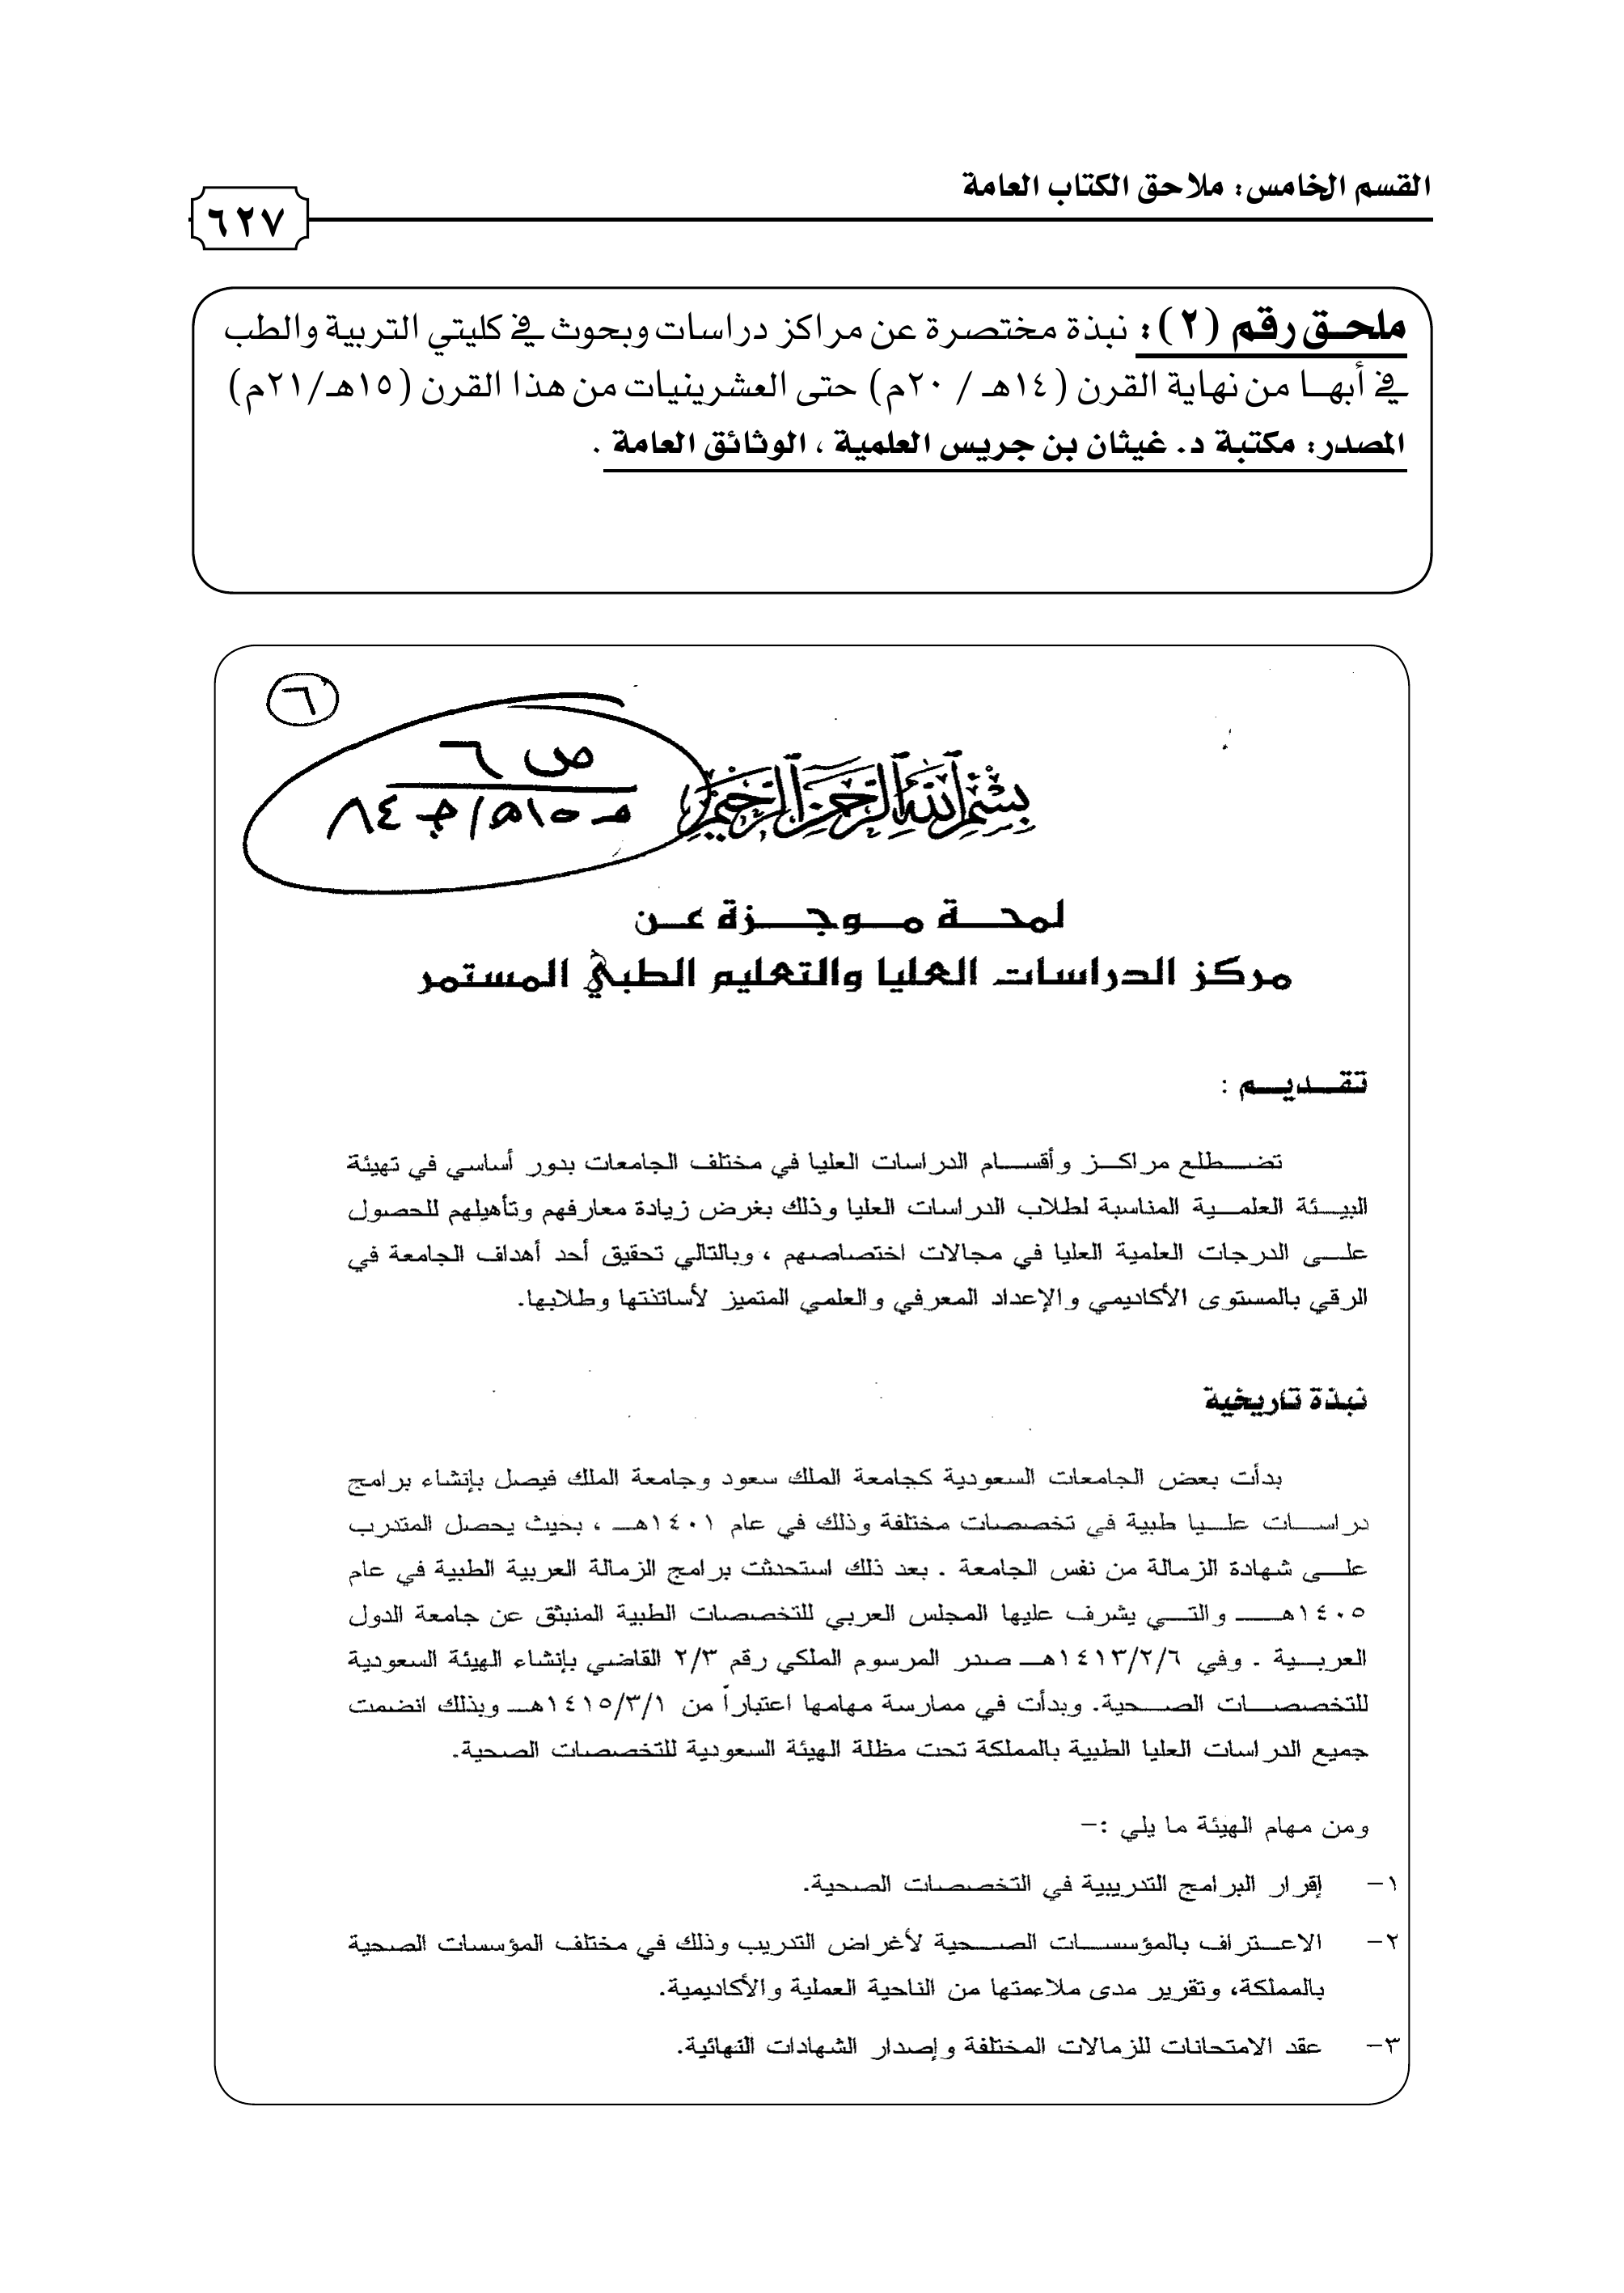 القسم الخامس: ملاحق الكتاب العامة
٦٢٧
ملحق رقم (٢): نبذة مختصرة عن مراكز دراسات وبحوث في كليتي التربية والطب
في أبها من نهاية القرن (١٤هـ / ٢٠م) حتى العشرينيات من هذا القرن (١٥هـ/٢١م)
المصدر: مكتبة د. غيثان بن جريس العلمية ، الوثائق العامة .
٦
ص ٦
بسم الله الرحمن الرحيم
لمحة موجزة عن
مركز الدراسات العليا والتعليم الطبي المستمر
تقديم :
تضطلع مراكز وأقسام الدراسات العليا في مختلف الجامعات بدور أساسي في تهيئة
البيئة العلمية المناسبة لطلاب الدراسات العليا وذلك بغرض زيادة معارفهم وتأهيلهم للحصول
على الدرجات العلمية العليا في مجالات اختصاصهم ، وبالتالي تحقيق أحد أهداف الجامعة في
الرقي بالمستوى الأكاديمي والإعداد المعرفي والعلمي المتميز لأساتذتها وطلابها.
نبذة تاريخية
بدأت بعض الجامعات السعودية كجامعة الملك سعود وجامعة الملك فيصل بإنشاء برامج
دراسات عليا طبية في تخصصات مختلفة وذلك في عام ١٤٠١هـ ، بحيث يحصل المتدرب
على شهادة الزمالة من نفس الجامعة . بعد ذلك استحدثت برامج الزمالة العربية الطبية في عام
١٤٠٥هـ والتي يشرف عليها المجلس العربي للتخصصات الطبية المنبثق عن جامعة الدول
العربية . وفي ١٤١٣/٢/٦هـ صدر المرسوم الملكي رقم ٢/٣ القاضي بإنشاء الهيئة السعودية
للتخصصات الصحية. وبدأت في ممارسة مهامها اعتباراً من ١٤١٥/٣/١هـ وبذلك انضمت
جميع الدراسات العليا الطبية بالمملكة تحت مظلة الهيئة السعودية للتخصصات الصحية.
ومن مهام الهيئة ما يلي :-
١- إقرار البرامج التدريبية في التخصصات الصحية.
٢- الاعتراف بالمؤسسات الصحية لأغراض التدريب وذلك في مختلف المؤسسات الصحية
بالمملكة، وتقرير مدى ملاءمتها من الناحية العملية والأكاديمية.
٣- عقد الامتحانات للزمالات المختلفة وإصدار الشهادات النهائية.